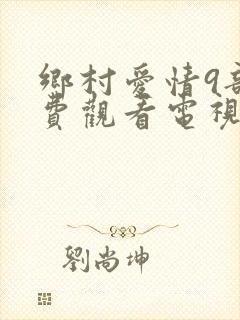 鄉村愛情9部
費觀看電視
劉尚坤